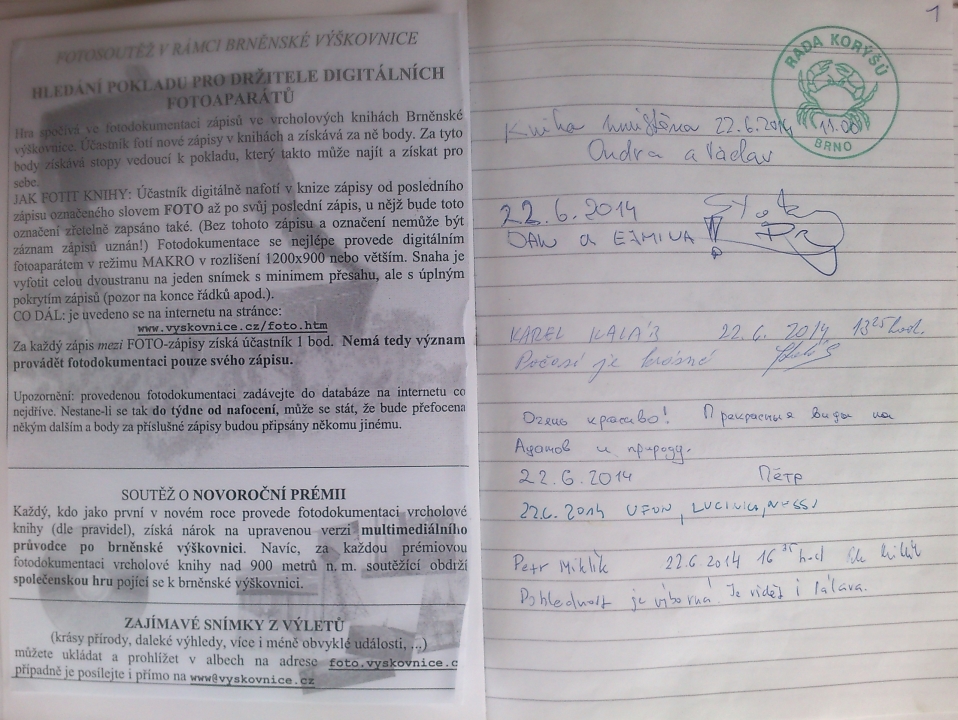 FOTOSOUTĚŽ V RÁMCI BRNĚNSKÉ VÝŠKOVNICE
HLEDÁNÍ POKLADU PRO DRŽITELE DIGITÁLNÍCH
FOTOAPARÁTŮ
Hra spočívá ve fotodokumentaci zápisů ve vrcholových knihách Brněnské
výškovnice. Účastník fotí nové zápisy v knihách a získává za ně body. Za tyto
body získává stopy vedoucí k pokladu, který takto může najít a získat pro
sebe.
JAK FOTIT KNIHY: Účastník digitálně nafotí v knize zápisy od posledního
zápisu označeného slovem FOTO až po svůj poslední zápis, u nějž bude toto
označení zřetelně zapsáno také. (Bez tohoto zápisu a označení nemůže být
záznam zápisů uznán!) Fotodokumentace se nejlépe provede digitálním
fotoaparátem v režimu MAKRO v rozlišení 1200x900 nebo větším. Snaha je
vyfotit celou dvoustranu na jeden snímek s minimem přesahu, ale s úplným
pokrytím zápisů (pozor na konce řádků apod.).
CO DÁL: je uvedeno se na internetu na stránce:
www.vyskovnice.cz/foto.htm
Za každý zápis mezi FOTO-zápisy získá účastník 1 bod. Nemá tedy význam
provádět fotodokumentaci pouze svého zápisu.
Upozornění: provedenou fotodokumentaci zadávejte do databáze na internetu co
nejdříve. Nestane-li se tak do týdne od nafocení, může se stát, že bude přefocena
někým dalším a body za příslušné zápisy budou připsány někomu jinému.
SOUTĚŽ O NOVOROČNÍ PRÉMII
Každý, kdo jako první v novém roce provede fotodokumentaci vrcholové
knihy (dle pravidel), získá nárok na upravenou verzi multimediálního
průvodce po brněnské výškovnici. Navíc, za každou prémiovou
fotodokumentaci vrcholové knihy nad 900 metrů n. m. soutěžící obdrží
společenskou hru pojící se k brněnské výškovnici.
ZAJÍMAVÉ SNÍMKY Z VÝLETŮ
(krásy přírody, daleké výhledy, více i méně obvyklé události, ...)
můžete ukládat a prohlížet v albech na adrese foto.vyskovnice.c
případně je posílejte i přímo na www@vyskovnice.cz
1
RADA KORÝŠŮ
BRNO
Kniha umístěna 22.6.2014 11.00
Ondra a Václav
22.6.2014
DAN a
KAREL KALÁB 22.6.2014 13 25 hod.
Počasí je krásné
Очень красиво! Прекрасные виды на
Адамов и природу.
22.6.2014 Пётр
22.6.2014 UFON,
Petr Miklík 22.6.2014 16 hod
Dohlednost je výborná. Je vidět i Pálava.